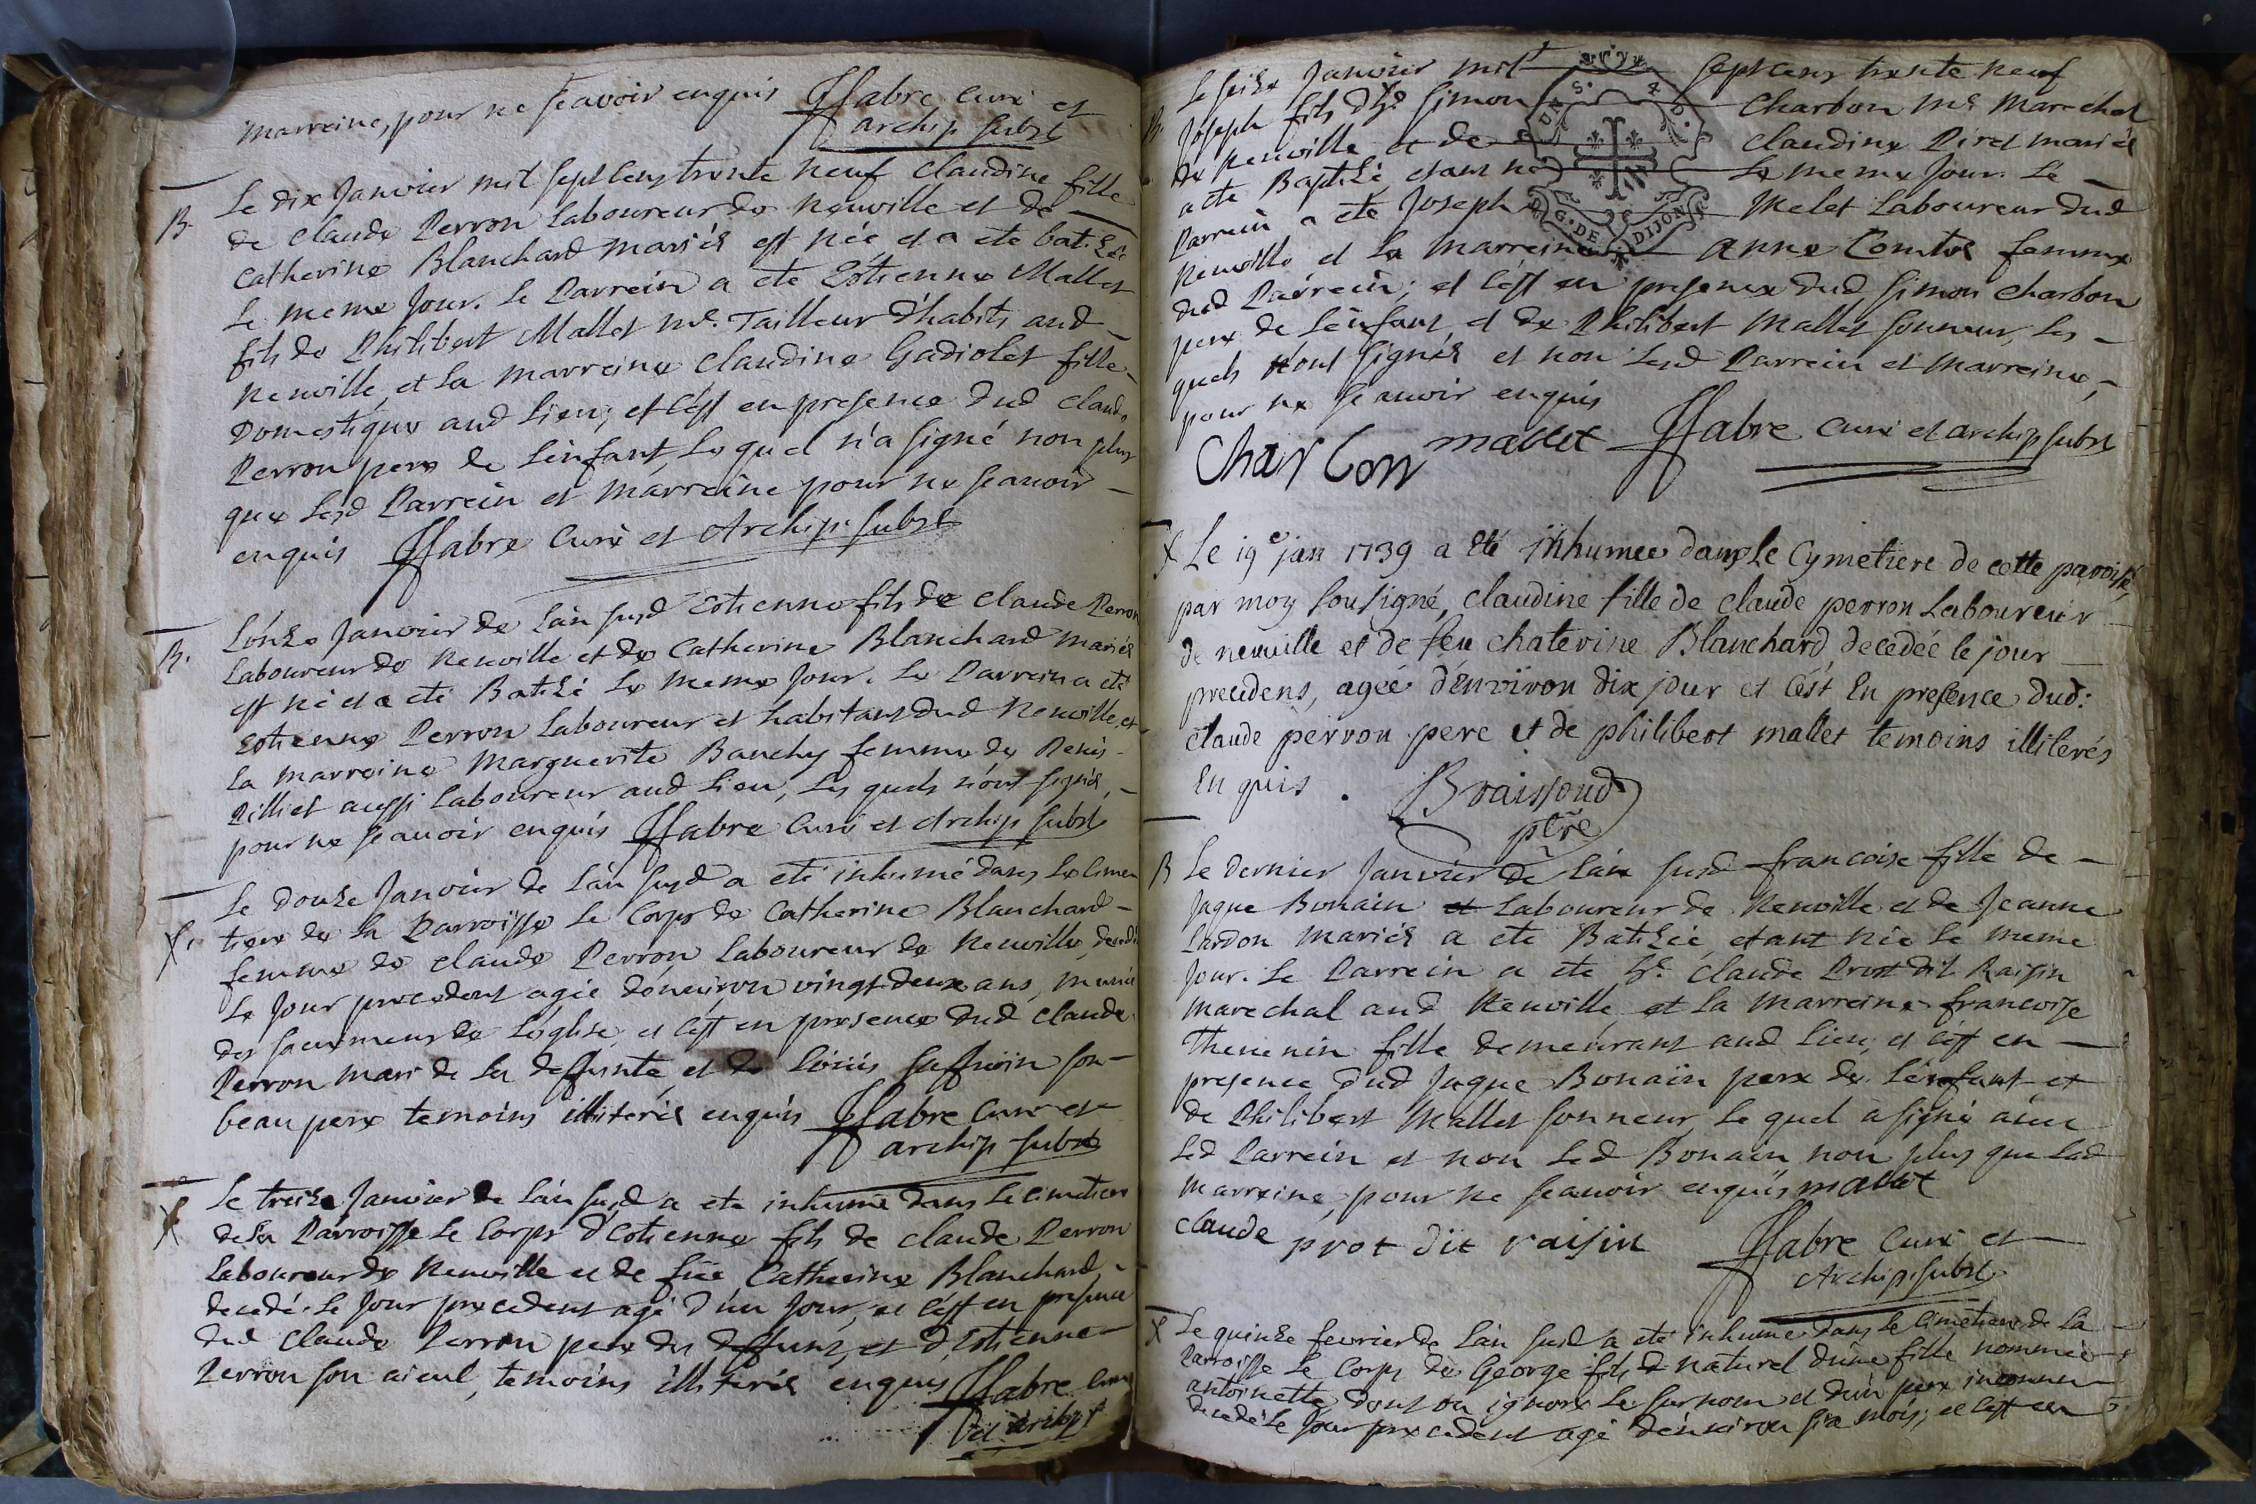 marreine, pour ne scavoir enquis ffabre Curé et
archip subst
B. Le dix Janvier mil sept cens trente neuf Claudine fille
de Claude Perron Laboureur de Neuville et de
Catherine Blanchard mariés est née et a eté batisée
le meme Jour. le Parrein a eté Estienne Mallet
fils de Philibert Mallet Me. Tailleur d'habits aud
Neuville, et la marreine Claudine Gadiolet fille
Domestique aud lieu; et c'est en presence dud Claude
Perron pere de l'enfant, lequel n'a signé non plus
que lesd Parrein et marreine pour ne scavoir
enquis ffabre Curé et Archip. subst
B. L'onze Janvier de l'an susd Estienne fils de Claude Perron
Laboureur de Neuville et de Catherine Blanchard mariés
est né et a eté Batisé le meme Jour. Le Parrein a eté
Estienne Perron Laboureur et habitant dud Neuville, et
la marreine Marguerite Banchy femme de Denis
Pilliet aussi laboureur aud lieu, les quels n'ont signés,
pour ne scavoir enquis ffabre Curé et Archip subst
X. Le douze Janvier de l'an susd a eté inhumé dans le cime
tiere de la Parroisse le Corps de Catherine Blanchard
femme de Claude Perron Laboureur de Neuville, decedé
le Jour precedent agée d'environ vingt deux ans, munie
des sacremens de l'eglise, et c'est en presence dud Claude
Perron mari de la deffunte, et de son
beau pere temoins illiterés enquis ffabre Curé et
archip subst
X Le treize Janvier de l'an susd a eté inhumé dans le cimetiere
de la Parroisse le Corps d'Estienne fils de Claude Perron
Laboureur de Neuville et de füe Catherine Blanchard
decedé le Jour precedent agé d'un Jour, et c'est en presence
dud Claude Perron pere du deffunt, et d'Estienne
Perron son aieul, temoins illiterés enquis ffabre Curé
et archip s
B. Le seize Janvier mil sept cens trente neuf
Joseph fils d'hd Simon Charbon Me Marechal
de Neuville et de Claudine Piret mariés
a eté Baptisé, etant né le meme Jour. Le
Parrein a eté Joseph Melet Laboureur dud
Neuville et la marreine Anne Comtet femme
dud Parrein; et c'est en presence dud Simon Charbon
pere de l'enfant, et de Philibert Mallet sonneur, les
quels ont signés et non lesd Parrein et marreine,
pour ne scavoir enquis
U.NS. 4 D.
G. DE DIJON
Charbon mallet ffabre Curé et archip subst
X Le 19e jan 1739 a eté inhumee dans Le Cymetiere de cette paroisse,
par moy sousigné, Claudine fille de Claude perron Laboureur
de neuville et de feu Chaterine Blanchard, decedée le jour
precedens, agée d'environ dix jour et C'est En presence dud:
Claude perron pere et de philibert mallet temoins illiterés
Enquis. Braissoud
ptre
B Le dernier Janvier de l'an susd francoise fille de
Jaque Bonain et Laboureur de Neuville et de Jeanne
Lardon mariés a eté Batisée, etant née le meme
Jour. Le Parrein a eté Sr. Claude Prost dit Raisin
marechal aud Neuville, et la marreine francoise
Thevenin fille demeurant aud lieu, et c'est en
presence dud Jaque Bonain pere de l'enfant et
de Philibert Mallet sonneur, le quel a signé avec
led Parrein et non led Bonain non plus que lad
marreine, pour ne scavoir enquis mallet
claude prot dit raisin ffabre Curé et
Archip. subst
X Le quinze fevrier de l'an susd a eté inhumé dans le Cimetiere de la
Parroisse le Corps de George fils naturel d'une fille nommée
antoinette, dont on ignore le surnom et d'un pere inconnu
decedé le Jour precedent agé d'environ six mois; et c'est en